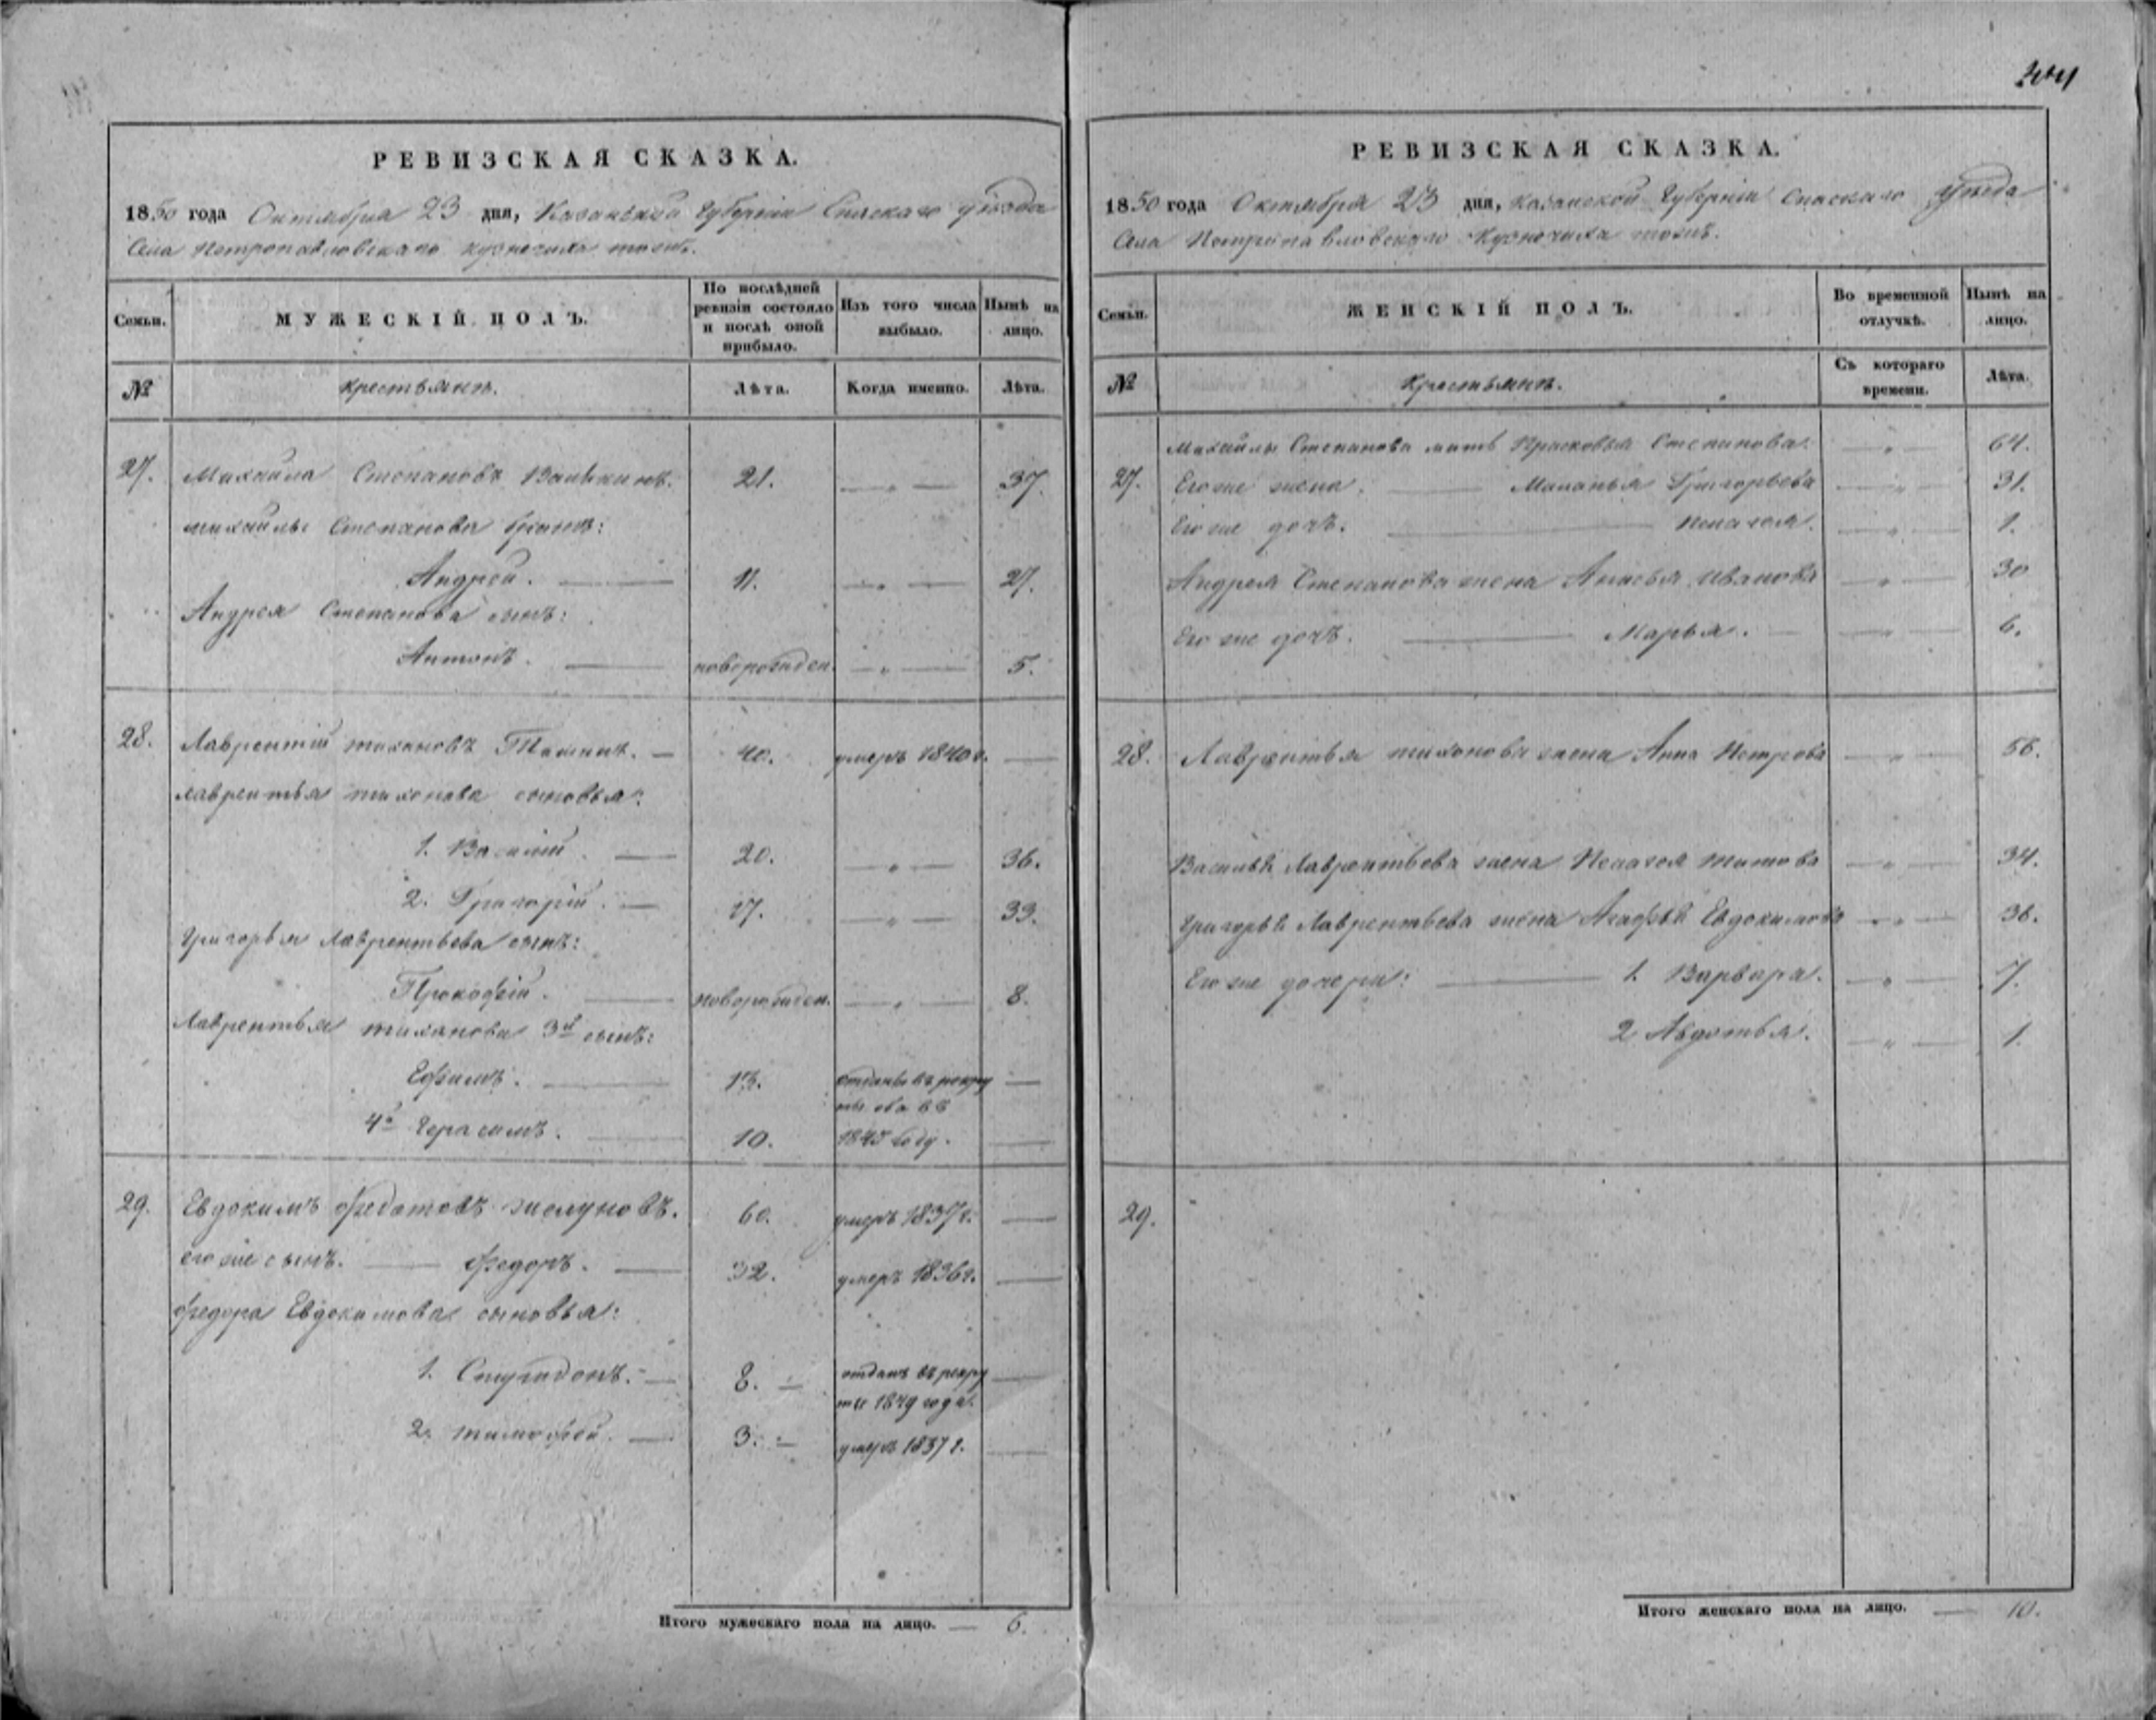 РЕВИЗСКАЯ СКАЗКА.
1850 года Октября 23 дня, Казанской губернiи Спаскаго уѣзда
Села Петропавловскаго Кузнечиха тожъ.
Семьи.
МУЖЕСКIЙ ПОЛЪ.
По послѣдней ревизiи состояло и послѣ оной прибыло.
Изъ того числа выбыло.
Нынѣ на лицо.
№
Крестьянъ.
Лѣта.
Когда именно.
Лѣта.
27. Михайла Степановъ 21. — „ — 37.
Михайлы Степанова братъ:
Андрей. — 11. — „ — 27.
Андрея Степанова сынъ:
Антонъ. — новорожден. — „ — 5.
28. Лаврентiй Тихоновъ — 40. умеръ 1840 г. —
Лаврентья Тихонова сыновья:
1. Василiй. — 20. — „ — 36.
2. Григорiй. — 17. — „ — 33.
Григорья Лаврентьева сынъ:
Прокофiй. — новорожден. — „ — 8.
Лаврентья Тихонова 3й сынъ:
Ефимъ. — 13. отданы въ рекру —
ты оба въ
4й Герасимъ. — 10. 1845 году. —
29. Евдокимъ Федотовъ 60. умеръ 1837 г. —
его же сынъ. — Федоръ. — 32. умеръ 1836 г. —
Федора Евдокимова сыновья:
1. Спиридонъ. — 8. — отданъ въ рекру —
ты 1849 года.
2. Тимофей. — 3. — умеръ 1837 г. —
Итого мужескаго пола на лицо. — 6.
РЕВИЗСКАЯ СКАЗКА.
1850 года Октября 23 дня, Казанской Губернiи Спаскаго Уѣзда
Села Петропавловскаго Кузнечиха тожъ.
Семьи.
ЖЕНСКIЙ ПОЛЪ.
Во временной отлучкѣ.
Нынѣ на лицо.
№
Крестьянъ.
Съ котораго времени.
Лѣта.
Михайлы Степанова мать Прасковья Степанова. — „ — 64.
27. Его же жена. — Маланья Григорьева — „ — 31.
Его же дочь. — Пелагея. — „ — 1.
Андрея Степанова жена Иванова — „ — 30
Его же дочь. — Марья. — „ — 6.
28. Лаврентья Тихонова жена Анна Петрова — „ — 56.
Василья Лаврентьева жена Пелагея Титова — „ — 34.
Григорья Лаврентьева жена Агафья Евдокимова — „ — 36.
Его же дочери: — 1. Варвара. — „ — 7.
2 Авдотья. — „ — 1.
29.
Итого женскаго пола на лицо. — 10.